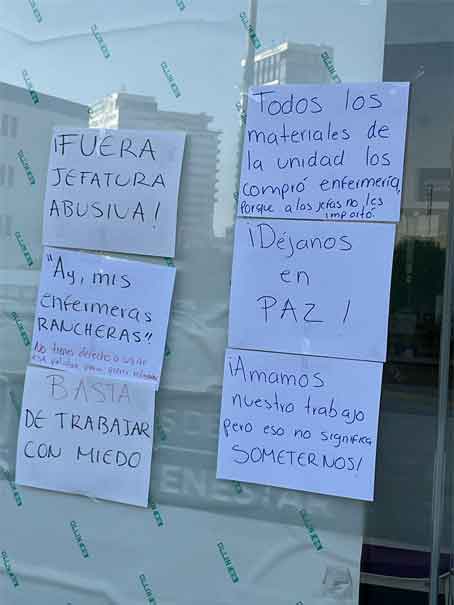 ¡FUERA
JEFATURA
ABUSIVA!
"Ay, mis
enfermeras
RANCHERAS"!
No tienes derecho a
BASTA
DE TRABAJAR
CON MIEDO
Todos los
materiales de
la unidad los
compró enfermería,
Porque a las jefas no les
importó.
¡Déjanos
en
PAZ!
¡Amamos
nuestro trabajo
pero eso no significa
SOMETERNOS!